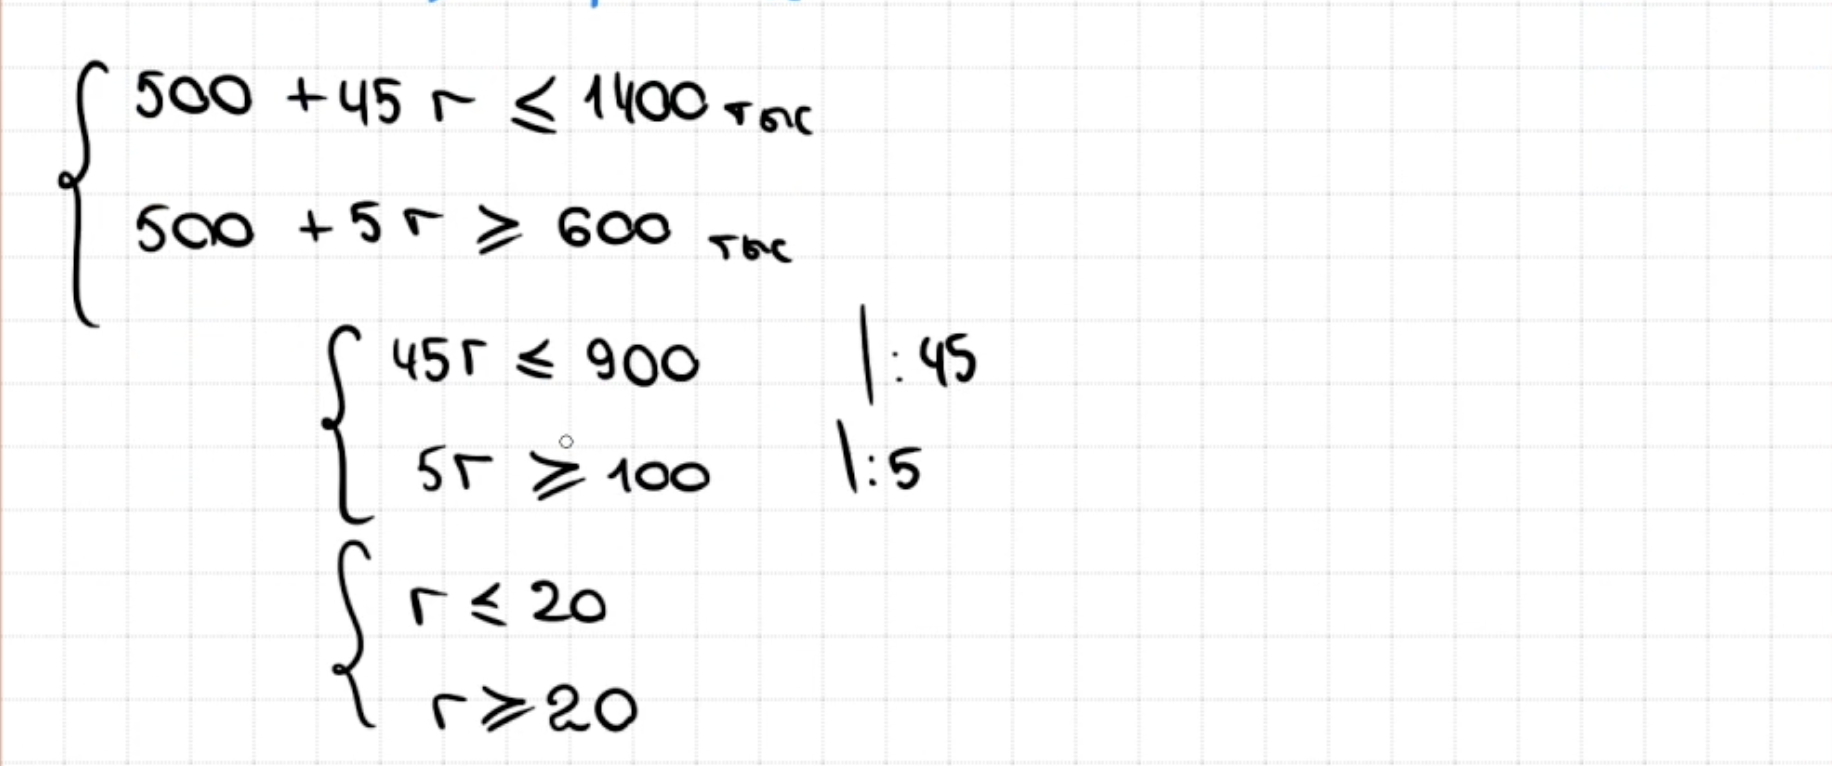 500 + 45 r ⩽ 1400 тыс
500 + 5 r ⩾ 600 тыс
45r ⩽ 900 |: 45
5r ⩾ 100 |: 5
r ⩽ 20
r ⩾ 20